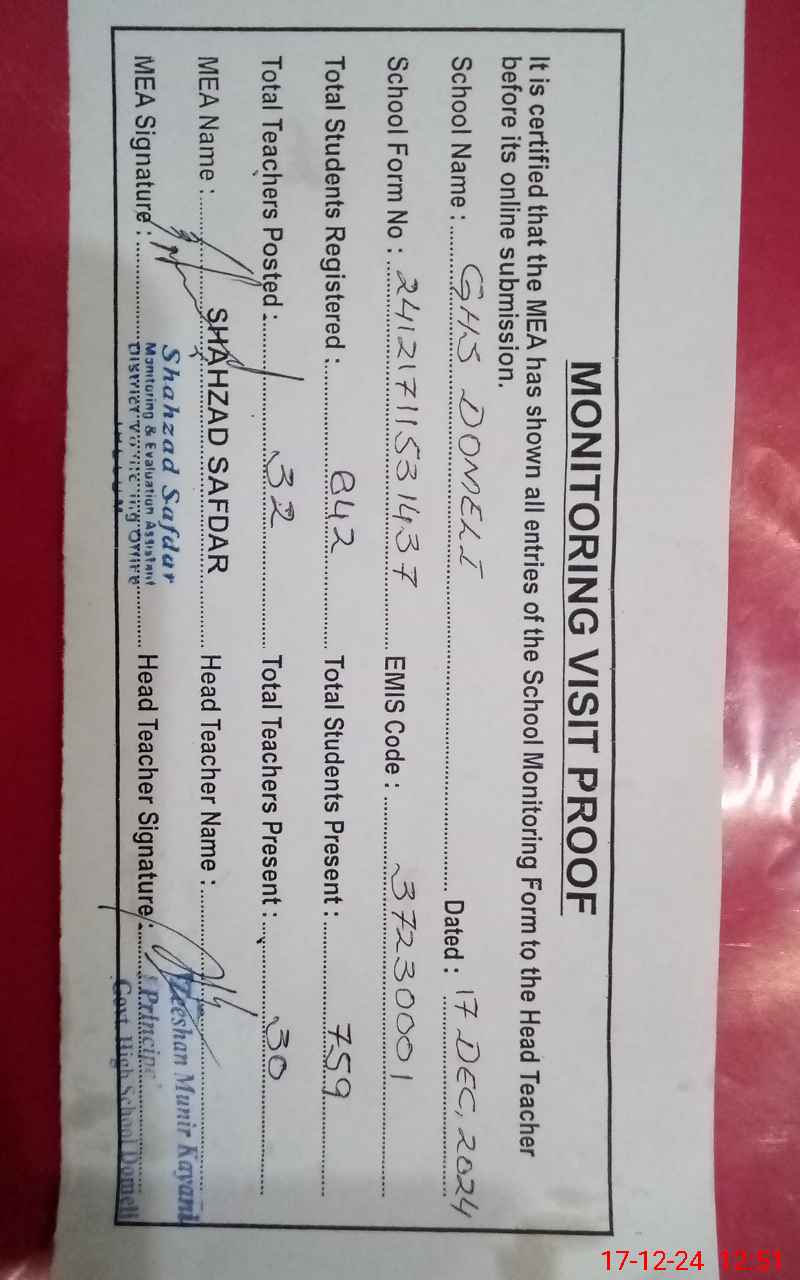 MONITORING VISIT PROOF
It is certified that the MEA has shown all entries of the School Monitoring Form to the Head Teacher
before its online submission.
School Name : GHS DOMELI Dated : 17 DEC, 2024
School Form No : 24121711531437 EMIS Code : 37230001
Total Students Registered : 842 Total Students Present : 759
Total Teachers Posted : 32 Total Teachers Present : 30
MEA Name : SHAHZAD SAFDAR Head Teacher Name :
Shahzad Safdar
Monitoring & Evaluation Assistant
District Monitoring Office
Zeeshan Munir Kayani
Principal
Govt. High School Domeli
MEA Signature : Head Teacher Signature :
17-12-24 12:51